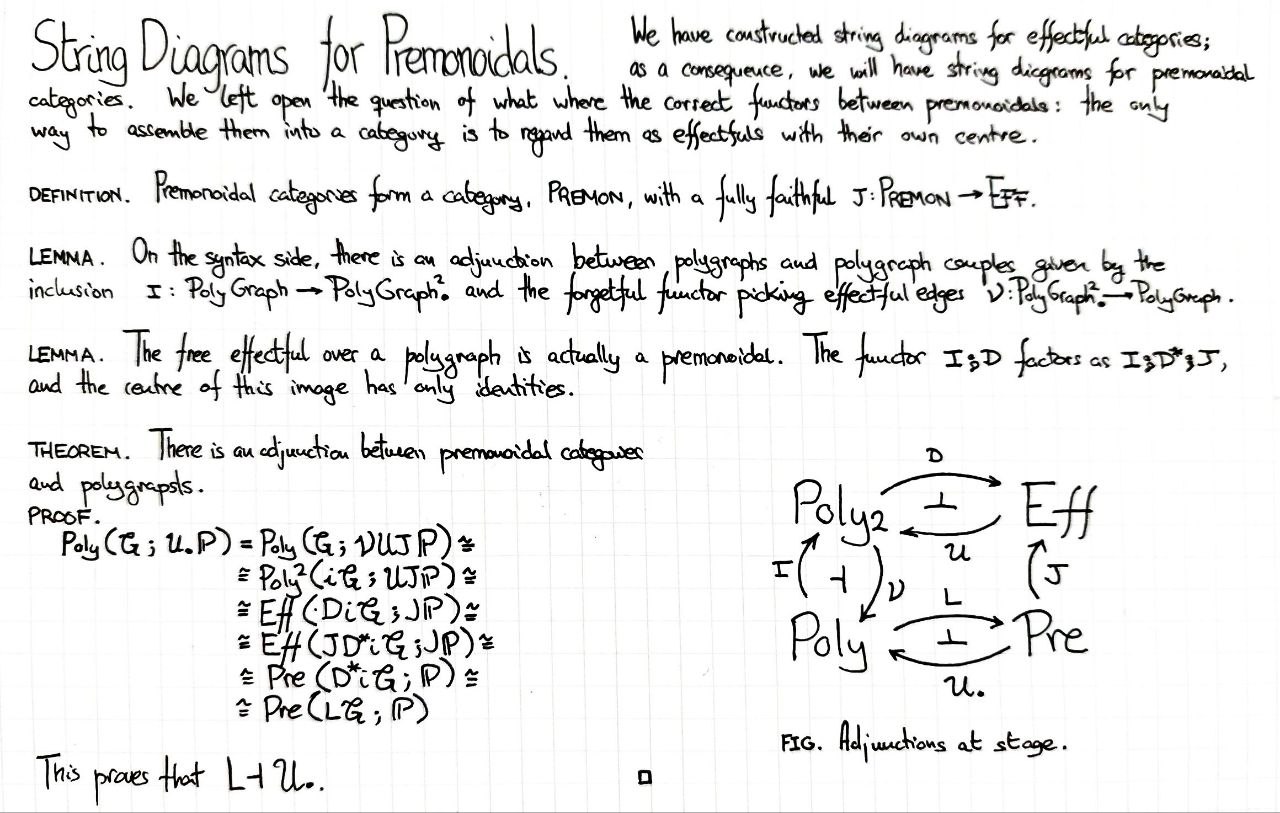 String Diagrams for Premonoidals. We have constructed string diagrams for effectful categories;
as a consequence, we will have string diagrams for premonoidal
categories. We left open the question of what where the correct functors between premonoidals: the only
way to assemble them into a category is to regard them as effectfuls with their own centre.
DEFINITION. Premonoidal categories form a category, PREMON, with a fully faithful J: PREMON → EFF.
LEMMA. On the syntax side, there is an adjunction between polygraphs and polygraph couples given by the
inclusion I: PolyGraph → PolyGraph². and the forgetful functor picking effectful edges V: PolyGraph². → PolyGraph.
LEMMA. The free effectful over a polygraph is actually a premonoidal. The functor I⨟D factors as I⨟D*⨟J,
and the centre of this image has only identities.
THEOREM. There is an adjunction between premonoidal categories
and polygrapsls.
PROOF.
Poly(G; U.ℙ) = Poly(G; VUJℙ) ≅
≅ Poly²(iG; UJℙ) ≅
≅ Eff(DiG; Jℙ) ≅
≅ Eff(JD*iG; Jℙ) ≅
≅ Pre(D*iG; ℙ) ≅
≅ Pre(LG; ℙ)
This proves that L ⊣ U..
□
D
Poly₂ ⊥ Eff
U
I ⊣ V J
L
Poly ⊥ Pre
U.
FIG. Adjunctions at stage.